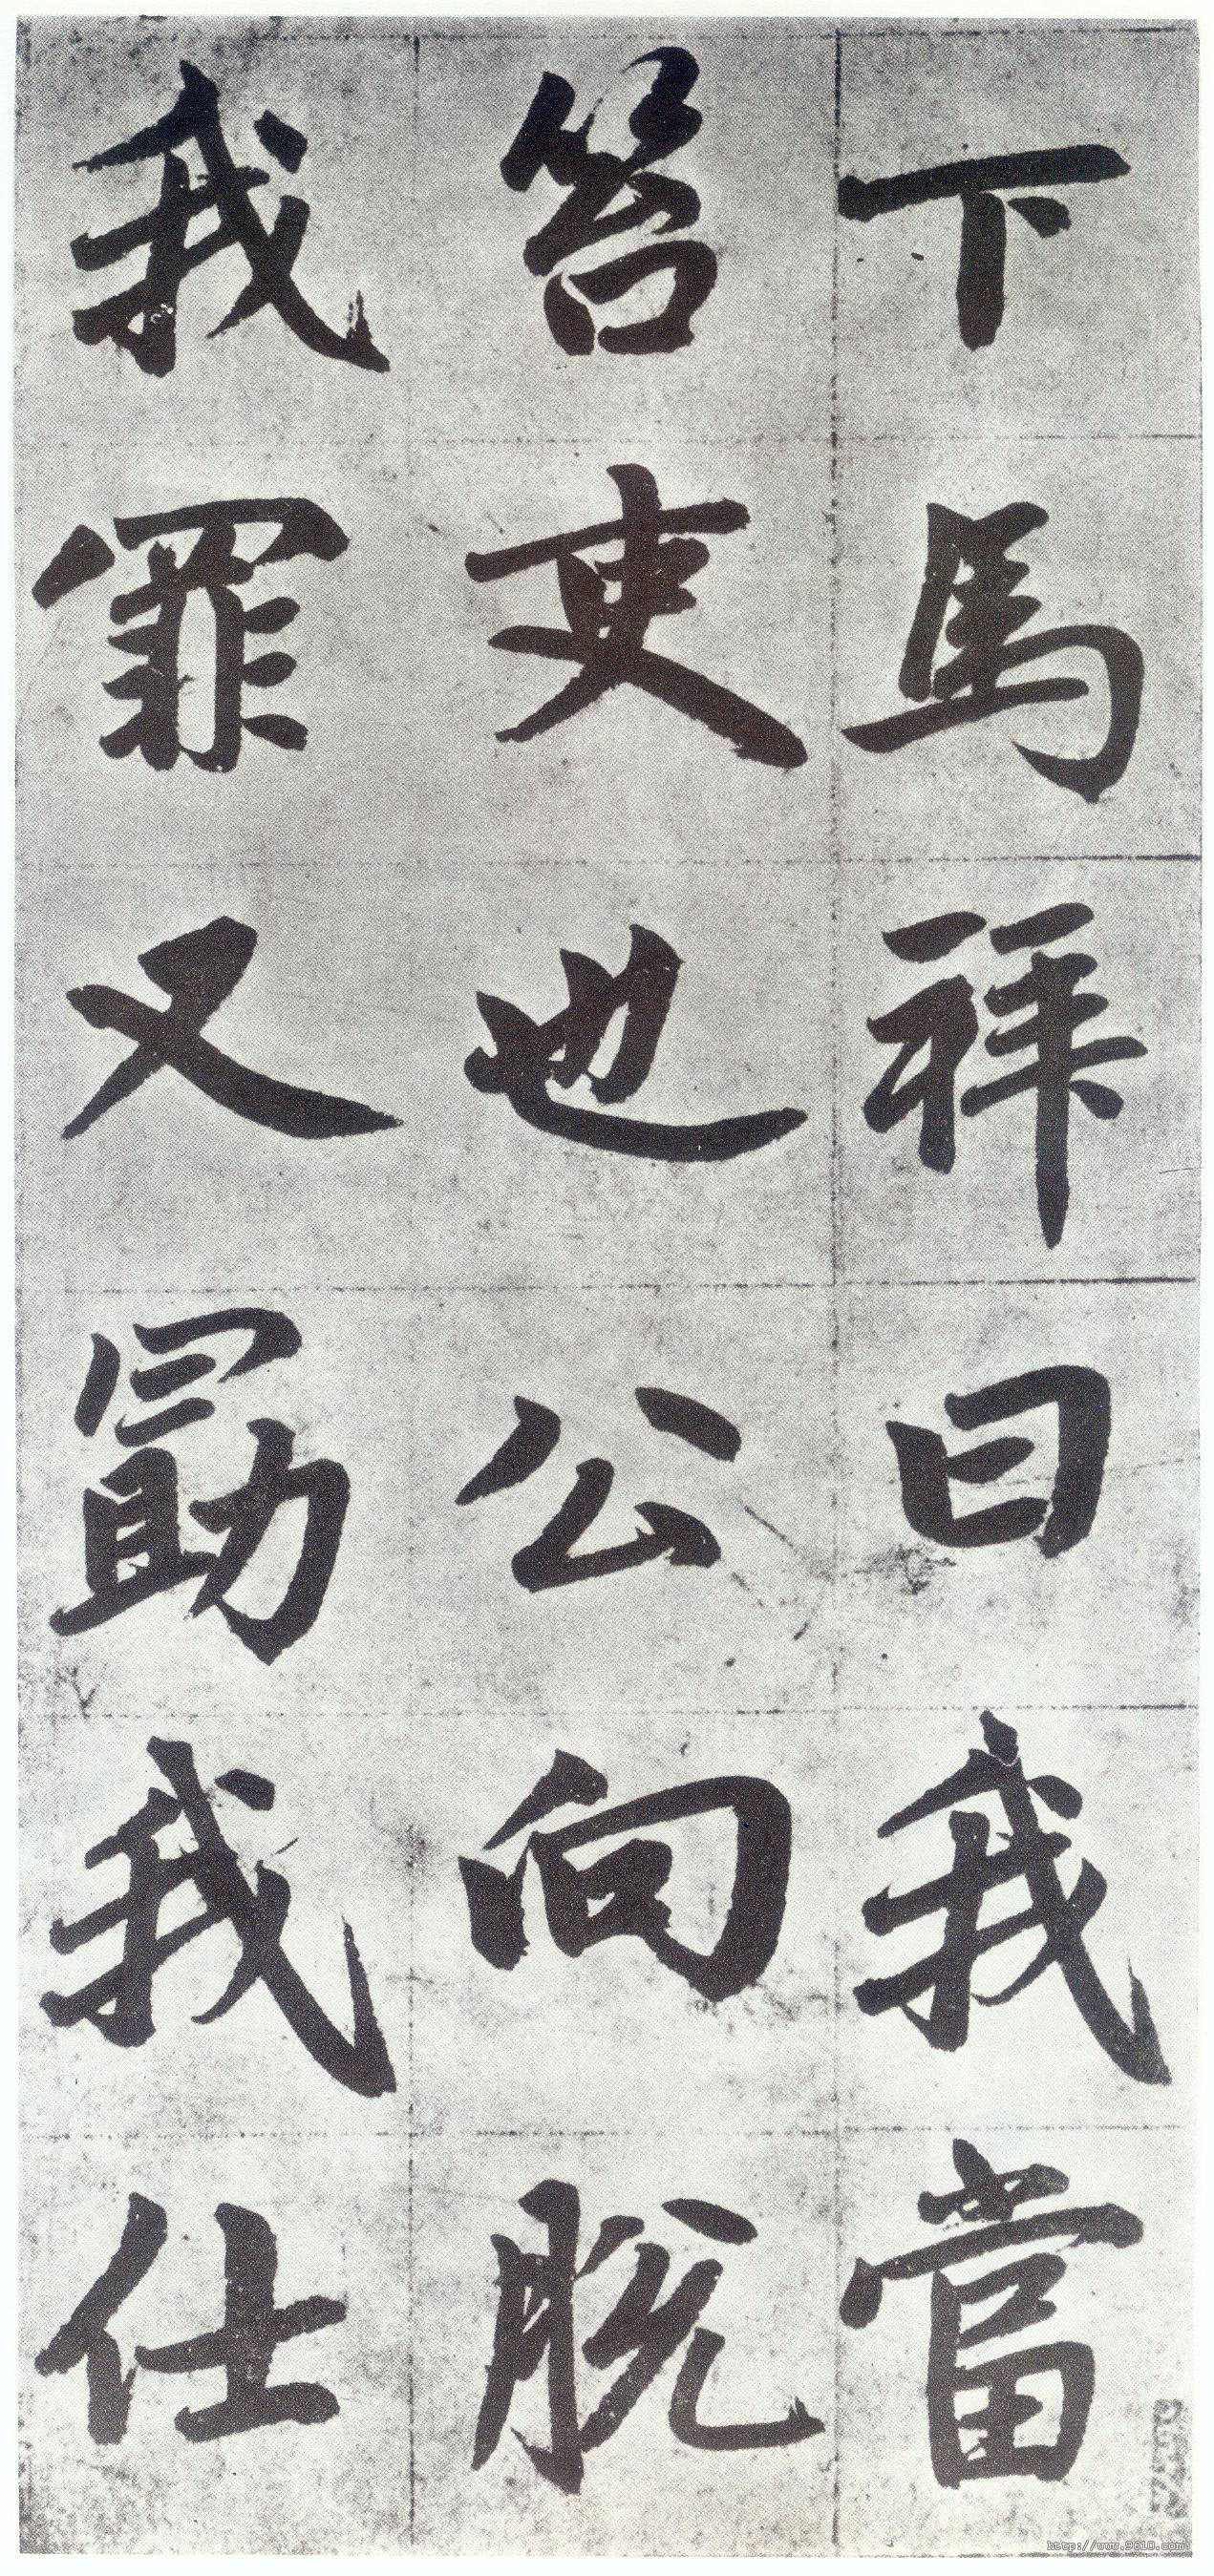 下馬拜曰我當
笞吏也公向脫
我罪又勗我仕
http://www.9610.com